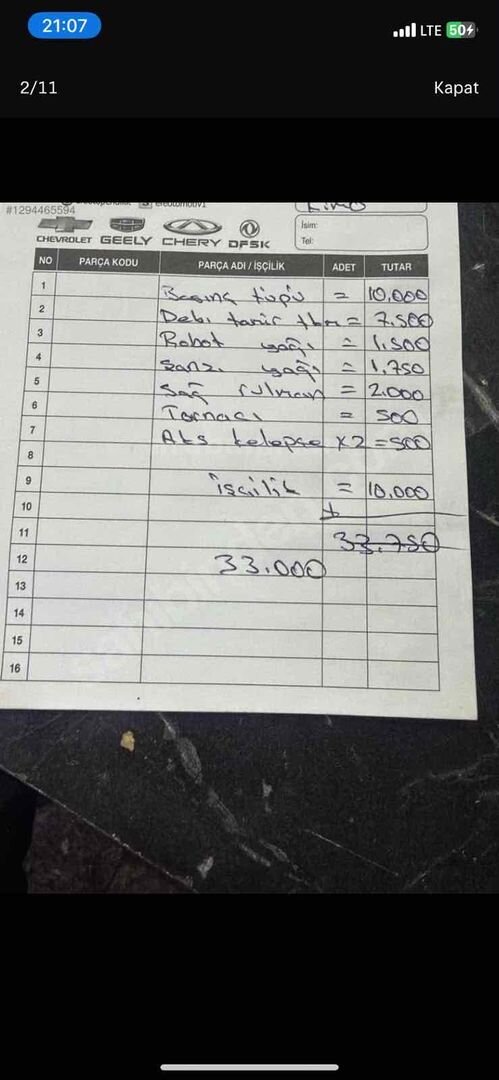 21:07
LTE 50
2/11
Kapat
#1294465594
İsim:
Tel:
CHEVROLET GEELY CHERY DFSK
NO PARÇA KODU PARÇA ADI / İŞÇİLİK ADET TUTAR
1 Basınç tüpü = 10,000
2 Debi tamir tkm = 7.500
3 Robot yağı = 1.500
4 Şanz. yağı = 1.750
5 Sağ rulman = 2.000
6 Tornacı = 500
7 Aks kelepçe x2 = 500
8
9 işçilik = 10,000
10 +
11 33.750
12 33.000
13
14
15
16